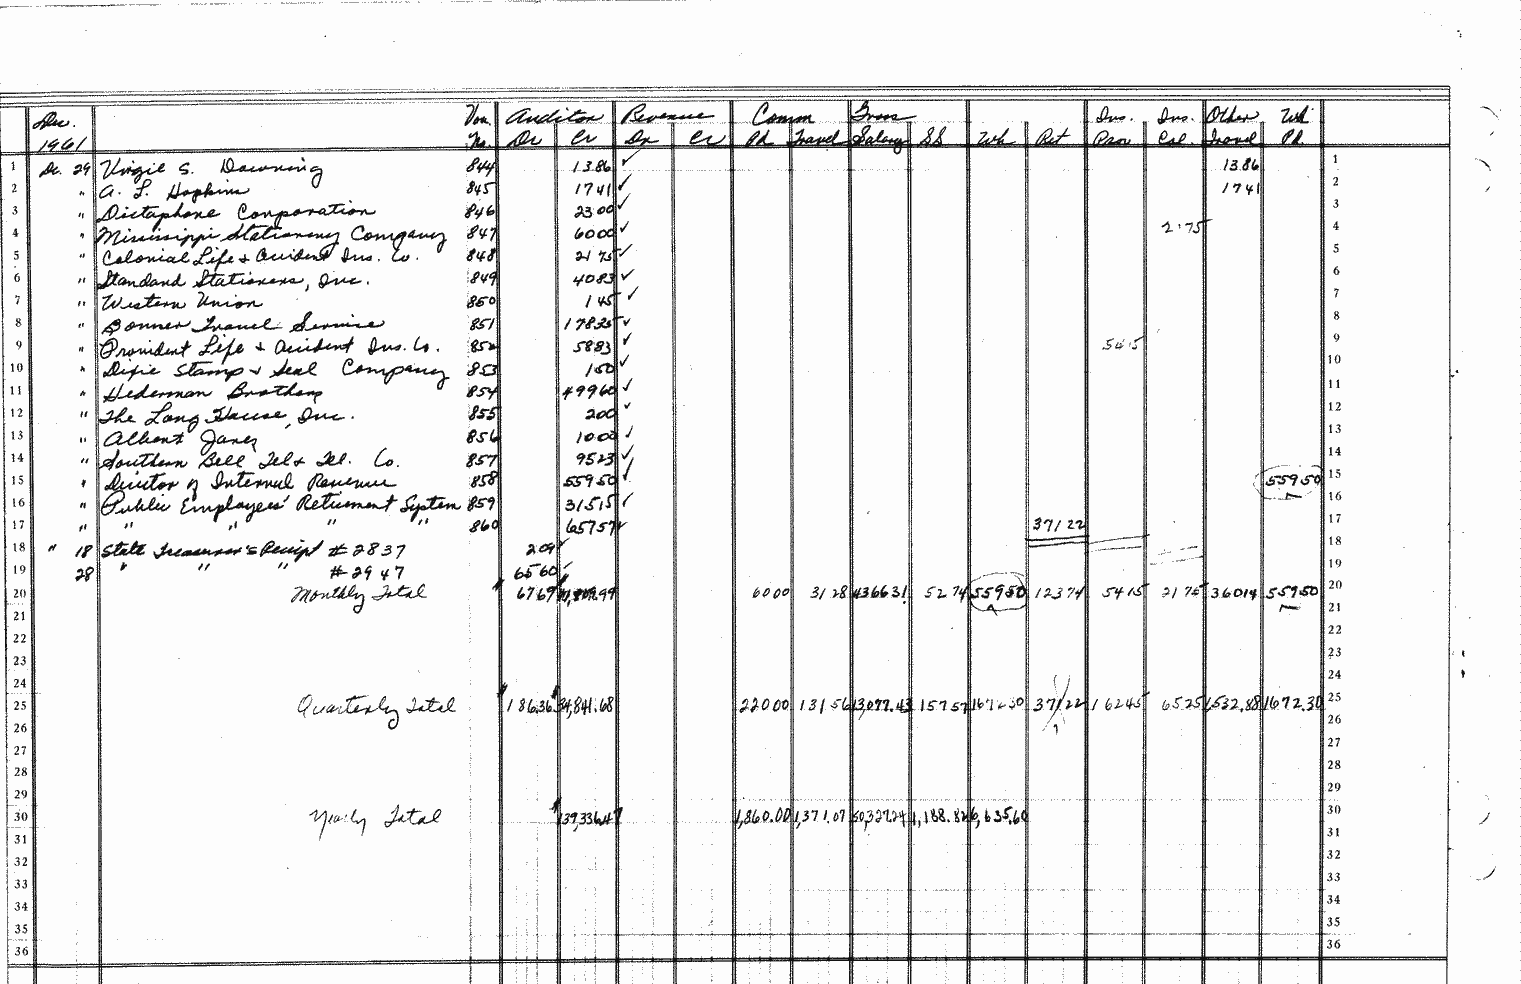 Dec. Vou. Auditor Revenue Comm Gross Ins. Ins. Other Wh
1961 No. Dr Cr Dr Cr Pd Travel Salary SS Wh Ret Prov Col. Travel Pd.
1 Dc. 29 Virgil S. Downing 844 13.86 ✓ 13.86 1
2 " A. L. Hopkins 845 17 41 ✓ 17 41 2
3 " Dictaphone Corporation 846 23 00 ✓ 3
4 " Mississippi Stationery Company 847 60 00 ✓ 21 75 4
5 " Colonial Life & Accident Ins. Co. 848 21 75 ✓ 5
6 " Standard Stationers, Inc. 849 40 83 ✓ 6
7 " Western Union 850 1 45 ✓ 7
8 " Bonner Travel Service 851 178 25 ✓ 8
9 " Provident Life & Accident Ins. Co. 852 58 83 ✓ 54 15 9
10 " Dixie Stamp & Seal Company 853 1 50 ✓ 10
11 " Hederman Brothers 854 499 60 ✓ 11
12 " The Long House, Inc. 855 2 00 ✓ 12
13 " Albert Jones 856 10 00 ✓ 13
14 " Southern Bell Tel & Tel. Co. 857 95 23 ✓ 14
15 " Director of Internal Revenue 858 559 50 ✓ 559 50 15
16 " Public Employees' Retirement System 859 315 15 ✓ 16
17 " " " " " 860 657 57 ✓ 371 22 17
18 " 18 State Treasurer's Receipt # 2837 2 09 ✓ 18
19 28 " " " # 2947 65 60 ✓ 19
20 Monthly Total 67 69 60 00 31 28 4366 31 52 74 559 50 123 74 54 15 21 75 360 14 559 50 20
21 21
22 22
23 23
24 24
25 Quarterly Total 186.36 34,841.68 220 00 131 56 13,099.43 157 57 1672 30 371 22 162 45 65 25 1,532.88 1672.30 25
26 26
27 27
28 28
29 29
30 Yearly Total 139,336.47 1,860.00 1,371.07 50,327.24 1,188.82 6,635.60 30
31 31
32 32
33 33
34 34
35 35
36 36